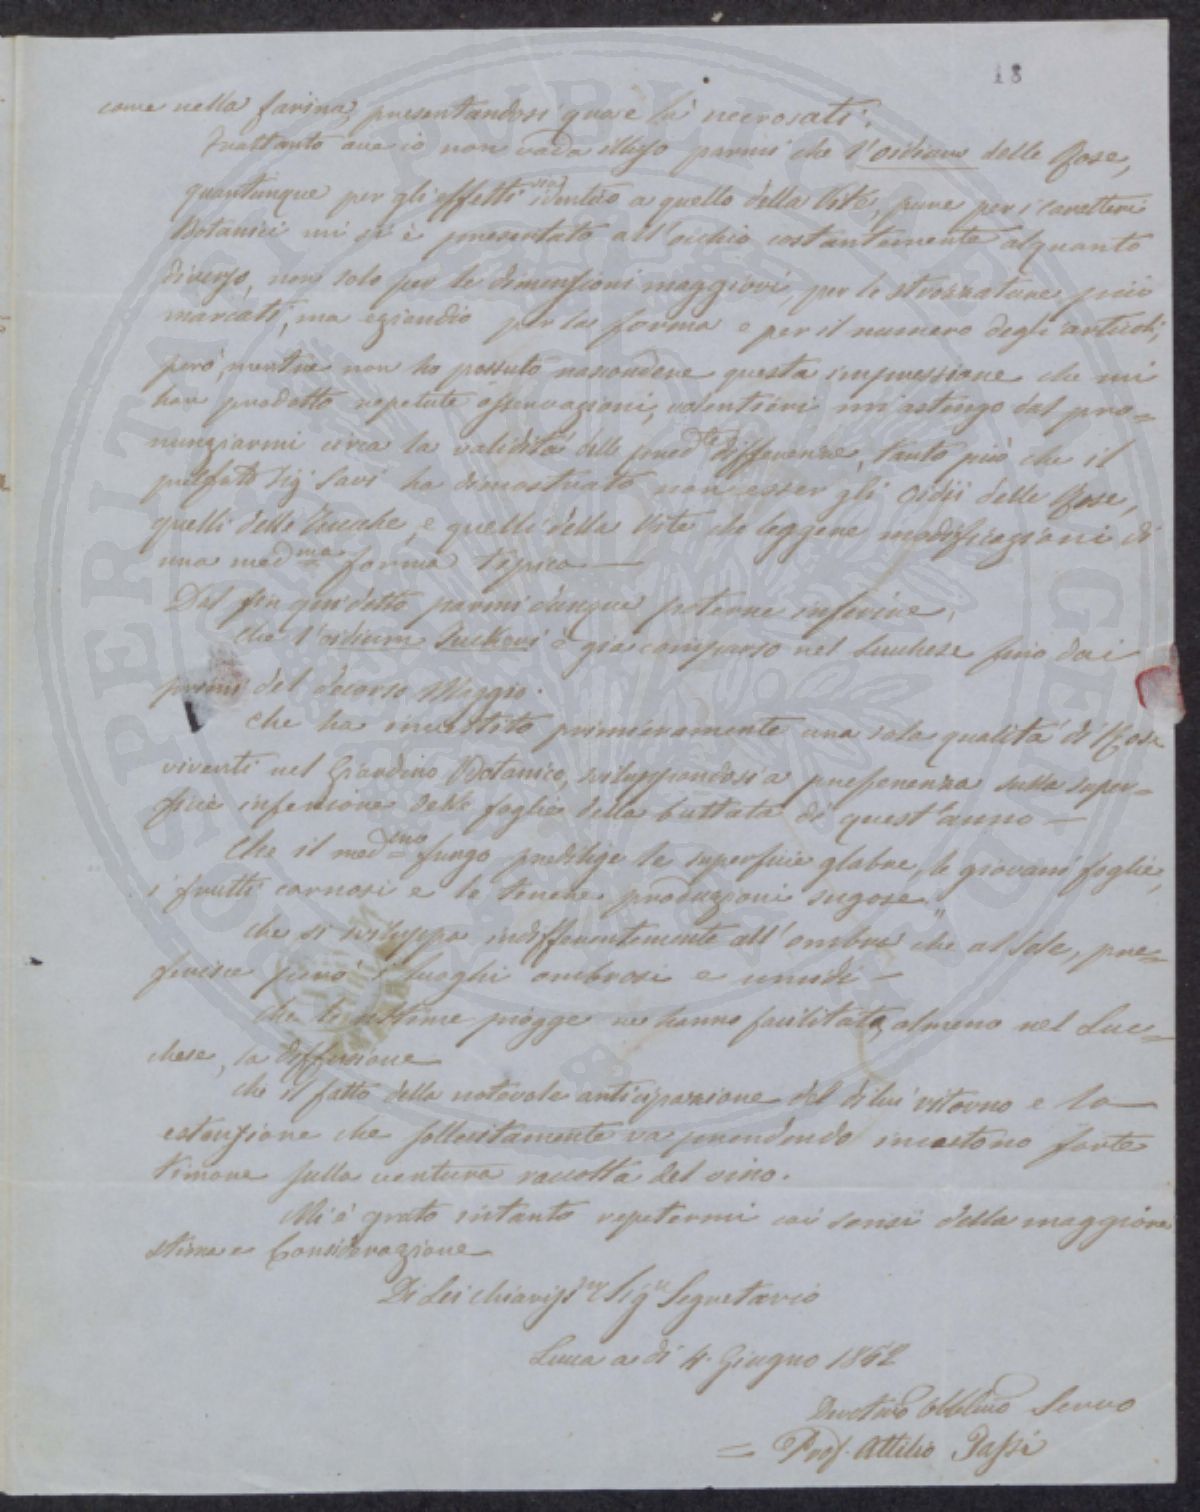 18
come nella farina, presentandosi qua e là necrosati.
Frattanto ove io non vada illuso parmi che l'oidium delle Rose,
quantunque per gli effetti sia identico a quello della Vite, pure per i caratteri
Botanici mi si è presentato all'occhio costantemente alquanto
diverso, non solo per le dimensioni maggiori, per le strozzature più
marcate, ma eziandio per la forma e per il numero degli articoli;
però, mentre non ho possuto nascondere questa impressione che mi
han prodotto repetute osservazioni, volentieri mi astengo dal pro=
nunziarmi circa la validità delle pred.te differenze, tanto più che il
prefato Sig. Savi ha dimostrato non esser gli Oidii delle Rose,
quelli delle Zucche, e quelli della Vite che leggere modificazioni di
una med.ma forma tipica —
Dal fin qui detto parmi dunque poterne inferire;
Che l'oidium Tuckeri è già comparso nel Lucchese fino dai
primi del decorso Maggio.
Che ha investito primieramente una sola qualità di Rose
viventi nel Giardino Botanico, sviluppandosi a preferenza sulla super=
ficie inferiore delle foglie della buttata di quest'anno —
Che il med.mo fungo predilige le superficie glabre, le giovani foglie,
i frutti carnosi e le tenere produzioni sugose.
Che si sviluppa indifferentemente all'ombra che al Sole, pre=
ferisce però i luoghi ombrosi e umidi —
Che le ultime piogge ne hanno facilitata, almeno nel Luc=
chese, la diffusione —
Che il fatto della notevole anticipazione del di lui ritorno e la
estensione che sollecitamente va prendendo incutono forte
timore sulla ventura raccolta del vino.
Mi è grato intanto repetermi coi sensi della maggiore
stima e Considerazione
Di Lei Chiariss.mo Sig.re Segretario
Lucca a dì 4. Giugno 1862
Devotmo Obblmo Servo
= Prof. Attilio Tassi
SOSPERITAS PUBLICAE AUGENDAE